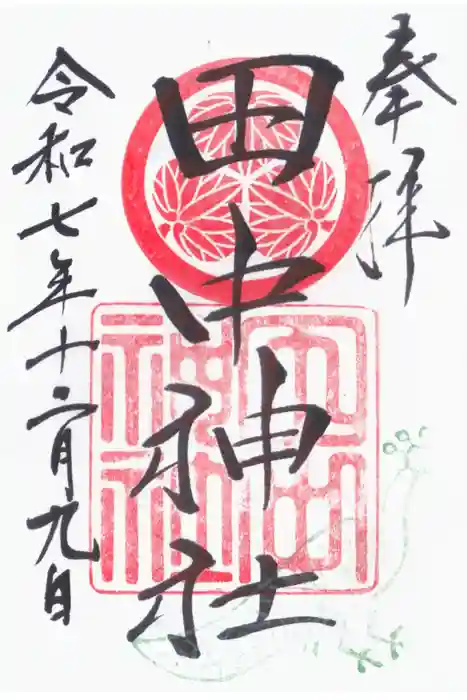 奉拝
田中神社
令和七年十二月九日